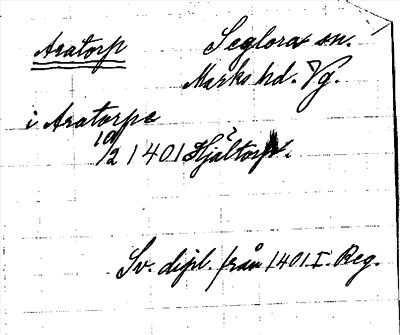 Aratorp
Seglora sn.
Marks hd. Vg.
i Aratorpe
10/2 1401 Hjältorp.
Sv. dipl. från 1401. I. Reg.